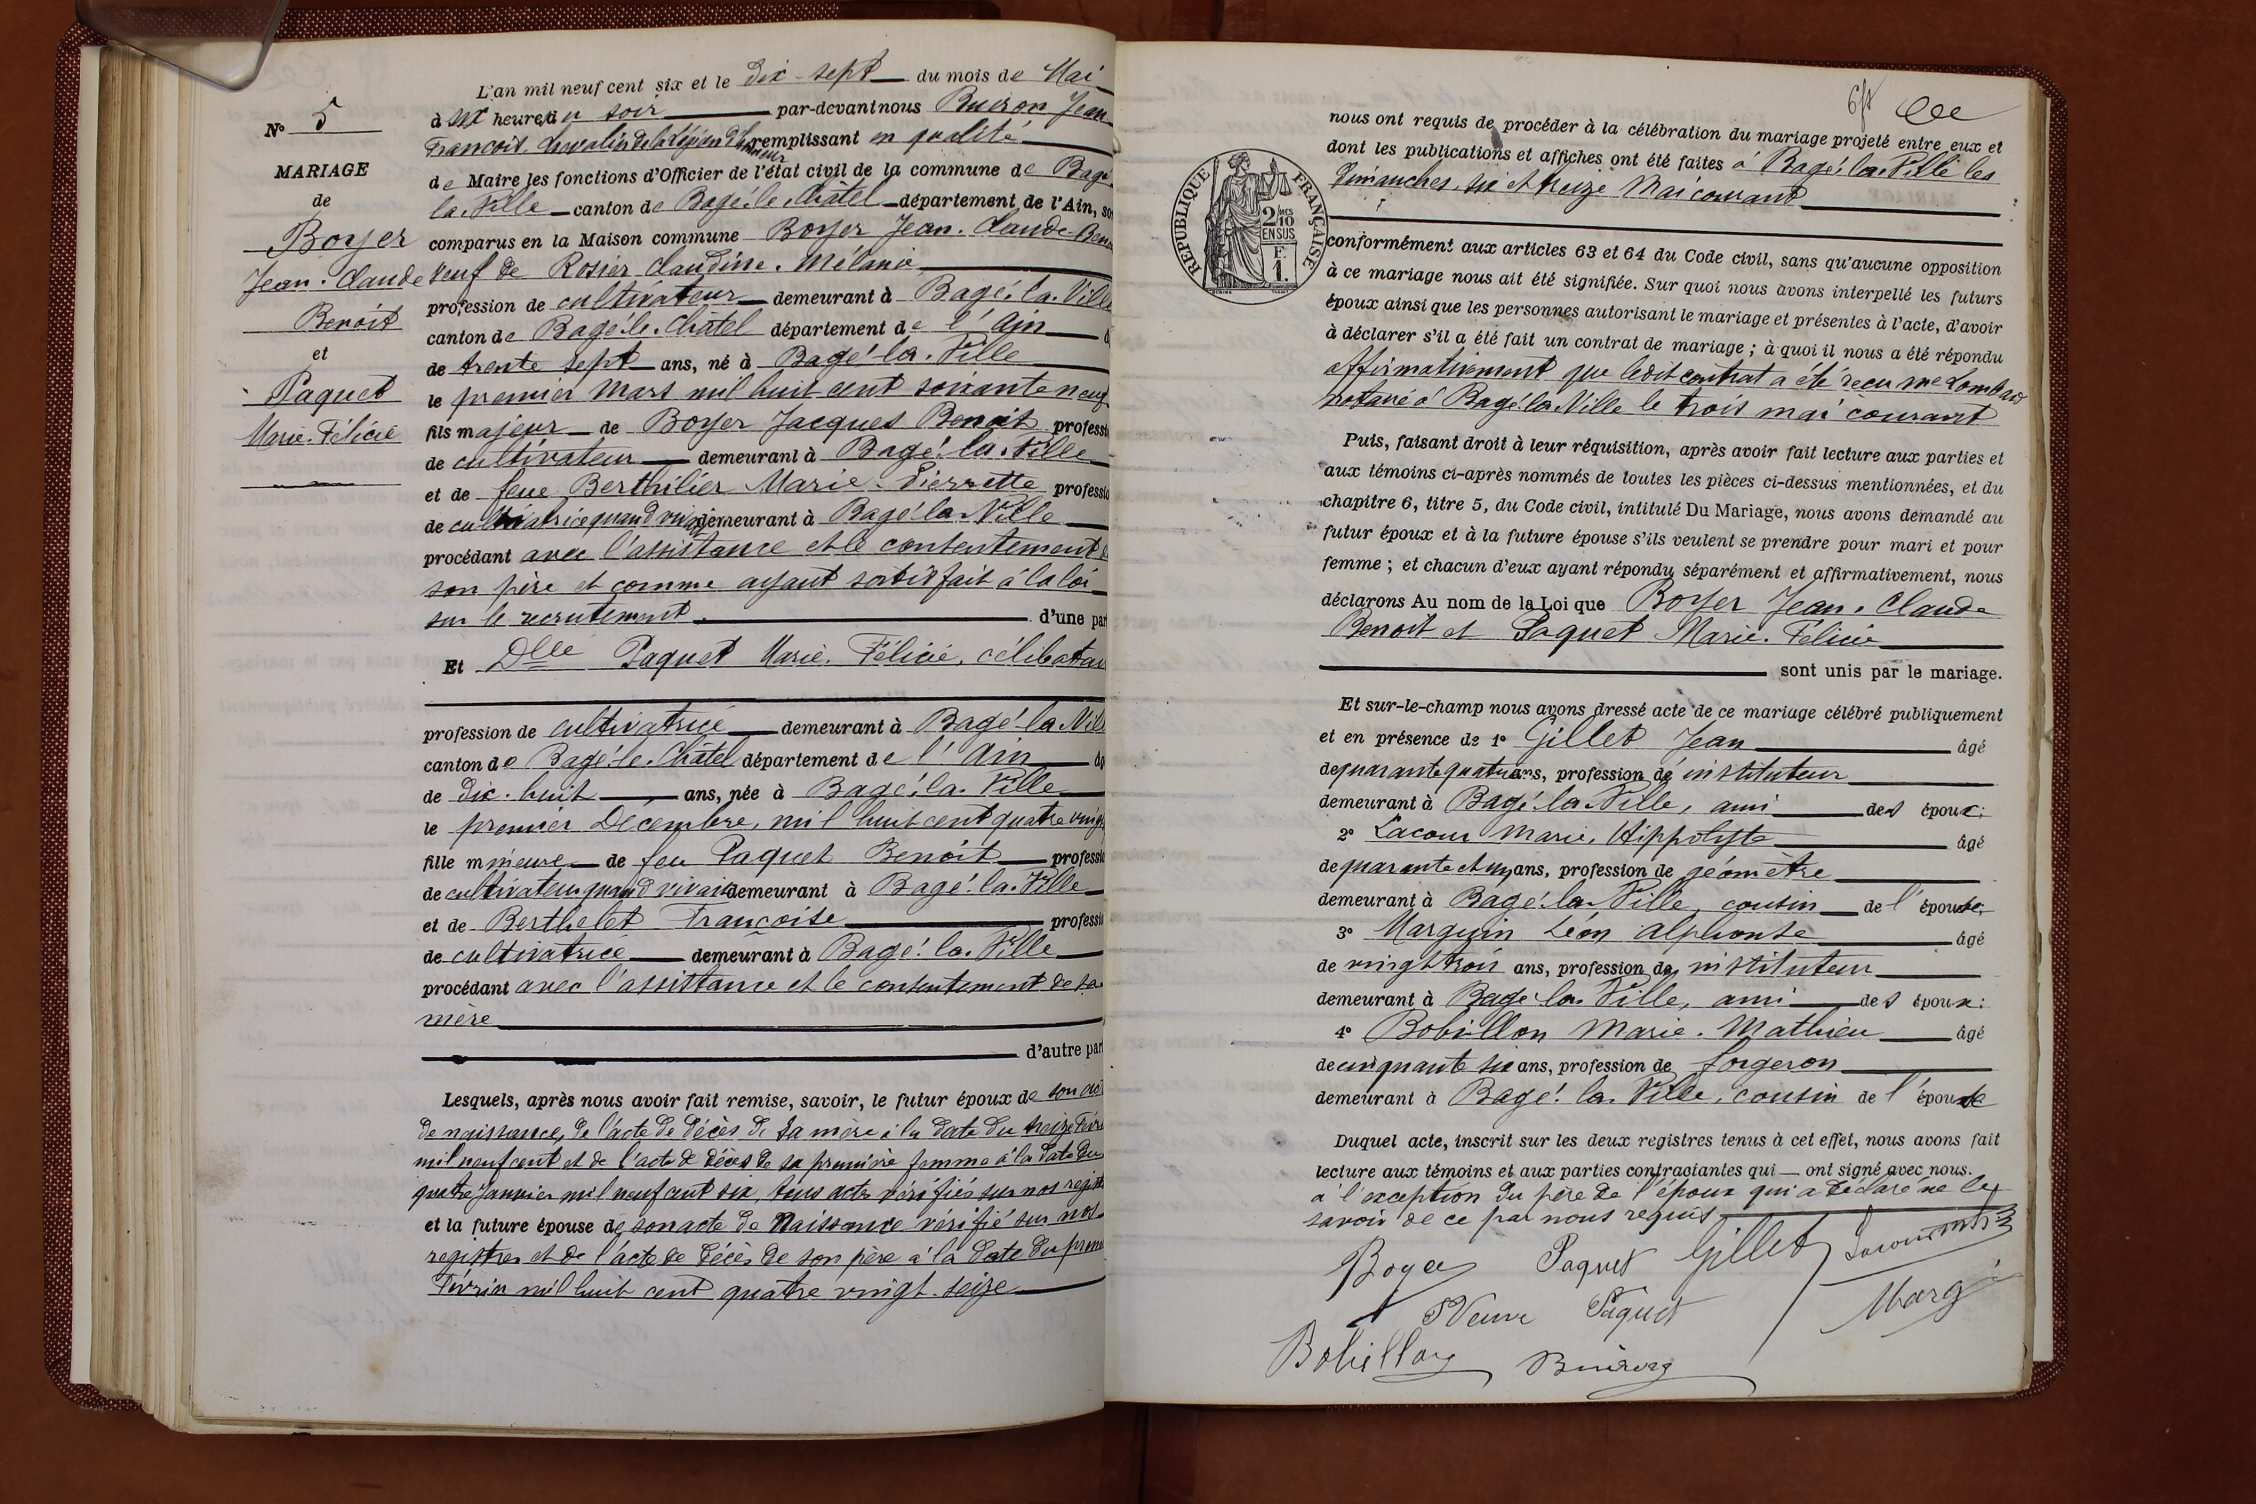 L'an mil neuf cent six et le dix-sept du mois de Mai
à six heures du soir par-devant nous Buiron Jean
François, chevalier de la légion d'honneur remplissant en qualité
N° 5
de Maire les fonctions d'Officier de l'état civil de la commune de Bagé
MARIAGE
la-Ville canton de Bagé-le-Châtel département de l'Ain, so
de
comparus en la Maison commune Boyer Jean-Claude-Beno
Boyer
veuf de Rosier Claudine-Mélanie
Jean-Claude
profession de cultivateur demeurant à Bagé-la-Ville
Benoit
canton de Bagé-le-Châtel département de l'Ain
et
de trente sept ans, né à Bagé-la-Ville
Paquet
le premier Mars mil huit cent soixante neuf
Marie-Félicie
fils majeur de Boyer Jacques Benoit professi
de cultivateur demeurant à Bagé-la-Ville
et de feue Berthilier Marie-Pierrette professio
de cultivatrice quand vivait demeurant à Bagé-la-Ville
procédant avec l'assistance et le consentement de
son père et comme ayant satisfait à la loi
sur le recrutement. d'une par
Et Dlle Paquet Marie-Félicie, célibatai
profession de cultivatrice demeurant à Bagé-la-Vill
canton de Bagé-le-Châtel département de l'Ain
de dix-huit ans, née à Bagé-la-Ville
le premier Décembre, mil huit cent quatre vingt
fille mineure de feu Paquet Benoit professio
de cultivateur quand vivait demeurant à Bagé-la-Ville
et de Berthelet Françoise professio
de cultivatrice demeurant à Bagé-la-Ville
procédant avec l'assistance et le consentement de sa
mère
d'autre par
Lesquels, après nous avoir fait remise, savoir, le futur époux de son act
de naissance, de l'acte de décès de sa mère à la date du treize Févri
mil neuf cent et de l'acte de décès de sa première femme à la date du
quatre Janvier mil neuf cent six, tous actes vérifiés sur nos registr
et la future épouse de son acte de Naissance vérifié sur nos
registres et de l'acte de décès de son père à la date du premi
Février mil huit cent quatre vingt-seize
nous ont requis de procéder à la célébration du mariage projeté entre eux et
dont les publications et affiches ont été faites à Bagé-la-Ville les
Dimanches, six et treize Mai courant
RÉPUBLIQUE FRANÇAISE
2/10 EN SUS
F. 1.
conformément aux articles 63 et 64 du Code civil, sans qu'aucune opposition
à ce mariage nous ait été signifiée. Sur quoi nous avons interpellé les futurs
époux ainsi que les personnes autorisant le mariage et présentes à l'acte, d'avoir
à déclarer s'il a été fait un contrat de mariage ; à quoi il nous a été répondu
affirmativement que ledit contrat a été reçu me Lombard
notaire à Bagé-la-Ville le trois mai courant
Puis, faisant droit à leur réquisition, après avoir fait lecture aux parties et
aux témoins ci-après nommés de toutes les pièces ci-dessus mentionnées, et du
chapitre 6, titre 5, du Code civil, intitulé Du Mariage, nous avons demandé au
futur époux et à la future épouse s'ils veulent se prendre pour mari et pour
femme ; et chacun d'eux ayant répondu séparément et affirmativement, nous
déclarons Au nom de la Loi que Boyer Jean-Claude
Benoit et Paquet Marie-Félicie
sont unis par le mariage.
Et sur-le-champ nous avons dressé acte de ce mariage célébré publiquement
et en présence de 1° Gillet Jean âgé
de quarante quatre ans, profession de instituteur
demeurant à Bagé-la-Ville, ami des époux ;
2° Lacour Marie, Hippolyte âgé
de quarante et un ans, profession de géomètre
demeurant à Bagé-la-Ville, cousin de l'épouse ;
3° Marguin Léon Alphonse âgé
de vingt trois ans, profession de instituteur
demeurant à Bagé-la-Ville, ami des époux ;
4° Bobillon Marie-Mathieu âgé
de cinquante six ans, profession de forgeron
demeurant à Bagé-la-Ville, cousin de l'épouse
Duquel acte, inscrit sur les deux registres tenus à cet effet, nous avons fait
lecture aux témoins et aux parties contractantes qui ont signé avec nous.
à l'exception du père de l'époux qui a déclaré ne le
savoir de ce par nous requis
Boyer Paquet Gillet Lacour
Veuve Paquet Marg
Bobillon Buiron